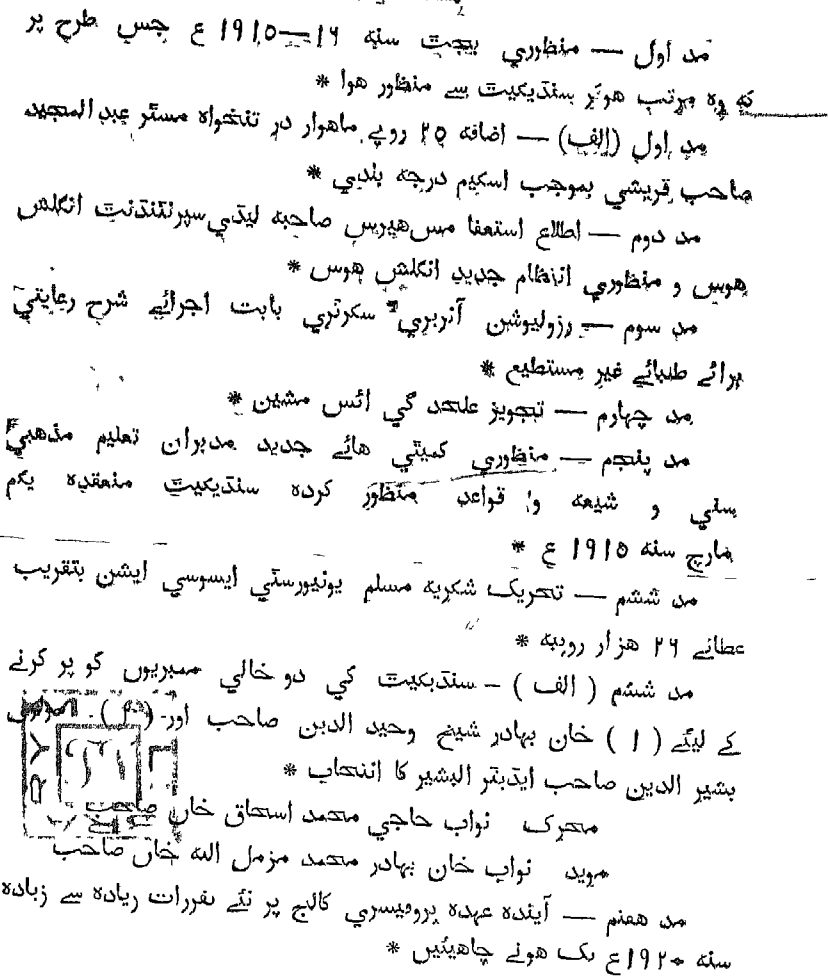 مد اول — منظوري بجت سنه ١٦—١٩١٥ ع جس طرح پر
که وه مرتب هوکر سنڌيکيت سے منظور هوا *
مد اول (الف) — اضافه ٢٥ روپے ماهوار در تنخواه مستر عبدالمجيد
صاحب قريشي بموجب اسکيم درجه بندي *
مد دوم — اطلاع استعفا مس هيرس صاحبه ليڌي سپرنتنڌنت انگلش
هوس و منظوري انتظام جديد انگلش هوس *
مد سوم — رزوليوشن آنريري سکرتري بابت اجرائے شرح رعايتي
برائے طلبائے غير مستطيع *
مد چهارم — تجويز علحدگي ائس مشين *
مد پنجم — منظوري کميتي هائے جديد مدبران تعليم مذهبي
سني و شيعه و قواعد منظور کرده سنڌيکيت منعقده يکم
مارچ سنه ١٩١٥ ع *
مد ششم — تحريک شکريه مسلم يونيورستي ايسوسي ايشن بتقريب
عطائے ٢٦ هزار روپيه *
مد ششم ( الف ) — سنڌيکيت کي دو خالي ممبريوں کو پر کرنے
کے ليئے ( ١ ) خان بهادر شيخ وحيد الدين صاحب اور (٢) مولوي
بشير الدين صاحب ايڌيتر البشير کا انتخاب *
محرک نواب حاجي محمد اسحاق خاں صاحب
مويد نواب خان بهادر محمد مزمل الله خاں صاحب
مد هفتم — آينده عهده پروفيسري کالج پر نئے تقررات زياده سے زياده
سنه ١٩٢٠ع تک هونے چاهيئيں *